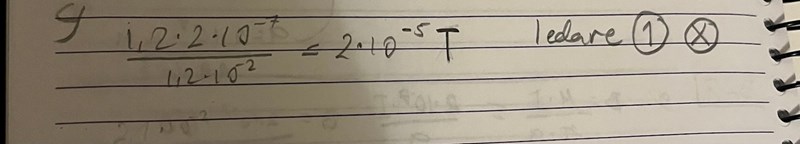 9 1,2·2·10⁻⁷ / 1,2·10⁻² = 2·10⁻⁵ T ledare ① ⊗